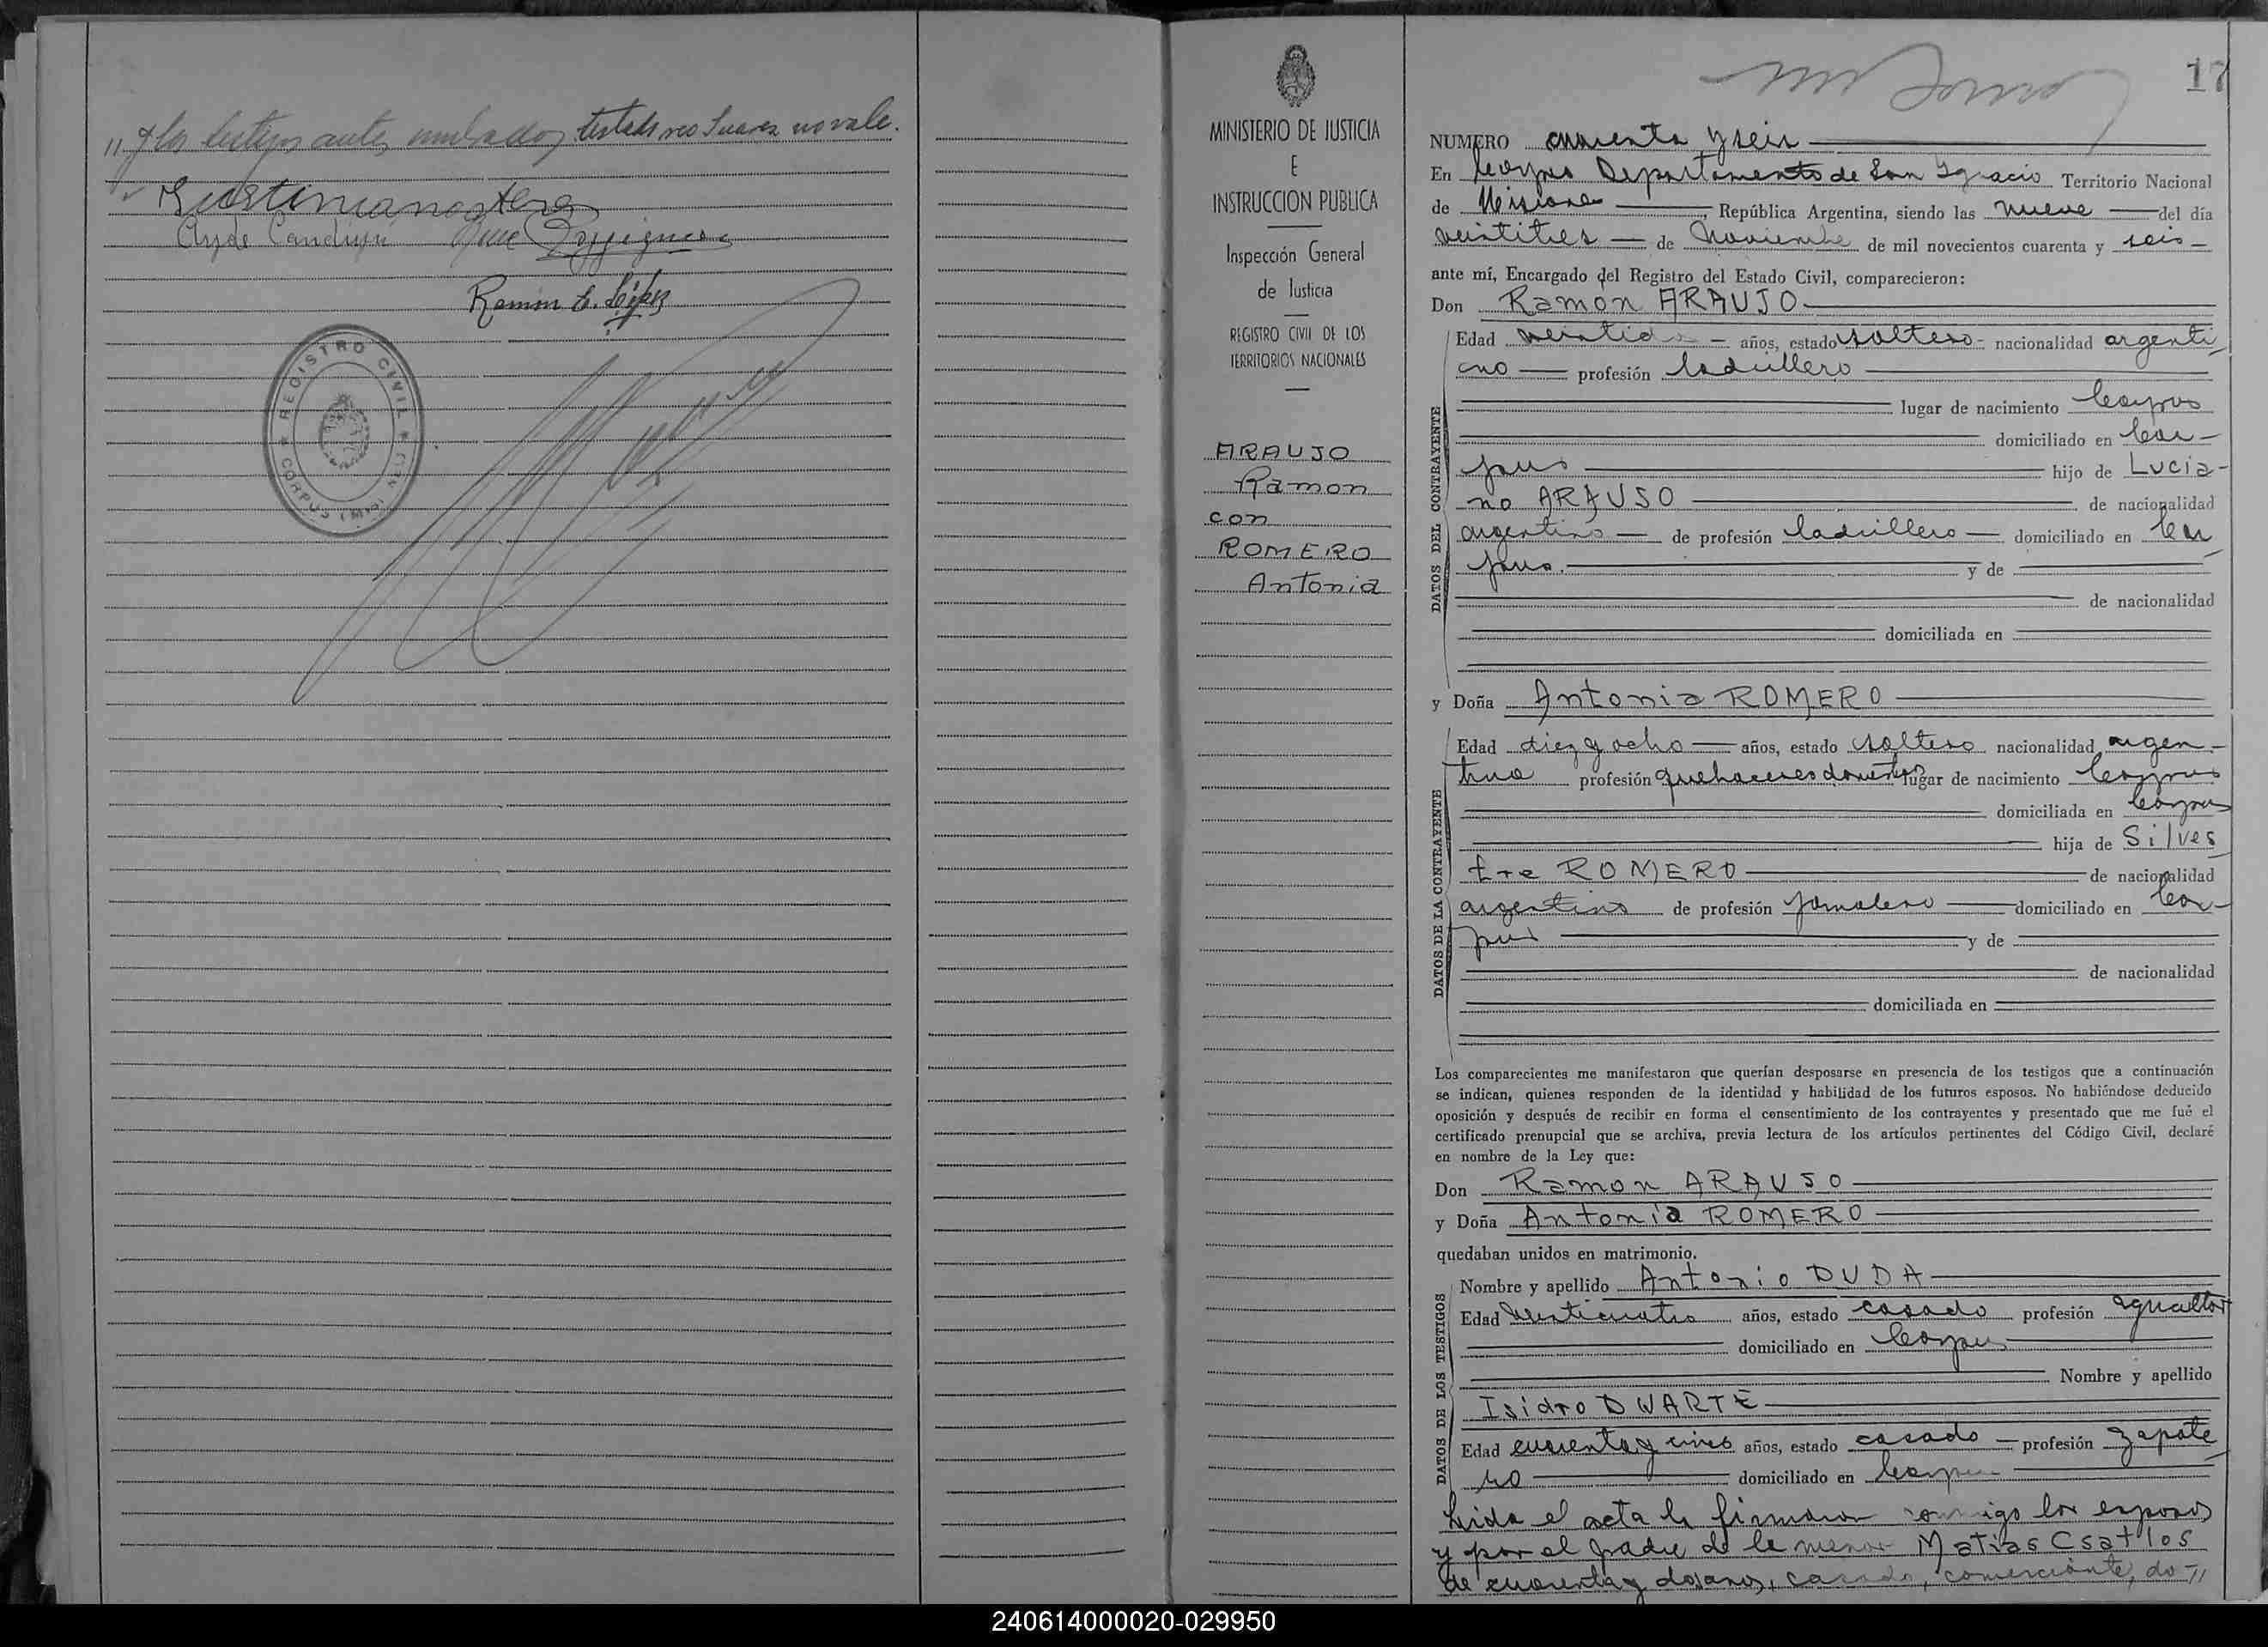 " y los testigos antes nombrados, testado reo Suarez no vale.
Ramón E. López
REGISTRO CIVIL
CORPUS
MINISTERIO DE JUSTICIA
E
INSTRUCCION PUBLICA
Inspección General
de Justicia
REGISTRO CIVIL DE LOS
TERRITORIOS NACIONALES
ARAUJO
Ramon
con
ROMERO
Antonia
17
NUMERO cuarenta y seis
En Corpus Departamento de San Ignacio Territorio Nacional
de Misiones, República Argentina, siendo las nueve del día
veintitres de Noviembre de mil novecientos cuarenta y seis
ante mí, Encargado del Registro del Estado Civil, comparecieron:
Don Ramon ARAUJO
DATOS DEL CONTRAYENTE
Edad años, estado soltero nacionalidad argenti
no profesión ladrillero
lugar de nacimiento Corpus
domiciliado en Cor-
pus hijo de Lucia-
no ARAUJO de nacionalidad
argentino de profesión ladrillero domiciliado en Cor
pus. y de
de nacionalidad
domiciliada en
y Doña Antonia ROMERO
DATOS DE LA CONTRAYENTE
Edad diez y ocho años, estado soltera nacionalidad argen-
tina profesión quehaceres domést lugar de nacimiento Corpus
domiciliada en Corpus
hija de Silves
tre ROMERO de nacionalidad
argentino de profesión jornalero domiciliado en Cor-
pus y de
de nacionalidad
domiciliada en
Los comparecientes me manifestaron que querían desposarse en presencia de los testigos que a continuación
se indican, quienes responden de la identidad y habilidad de los futuros esposos. No habiéndose deducido
oposición y después de recibir en forma el consentimiento de los contrayentes y presentado que me fué el
certificado prenupcial que se archiva, previa lectura de los artículos pertinentes del Código Civil, declaré
en nombre de la Ley que:
Don Ramon ARAUJO
y Doña Antonia ROMERO
quedaban unidos en matrimonio.
DATOS DE LOS TESTIGOS
Nombre y apellido Antonio DUDA
Edad veinticuatro años, estado casado profesión agricultor
domiciliado en Corpus
Nombre y apellido
Isidro DUARTE
Edad cuarenta y cinco años, estado casado profesión zapate
ro domiciliado en Corpus
Leida el acta la firmaron conmigo los esposos
y por el padre de la menor Matias Csatlos
de cuarenta y dos anos, casado, comerciante, do-"
240614000020-029950